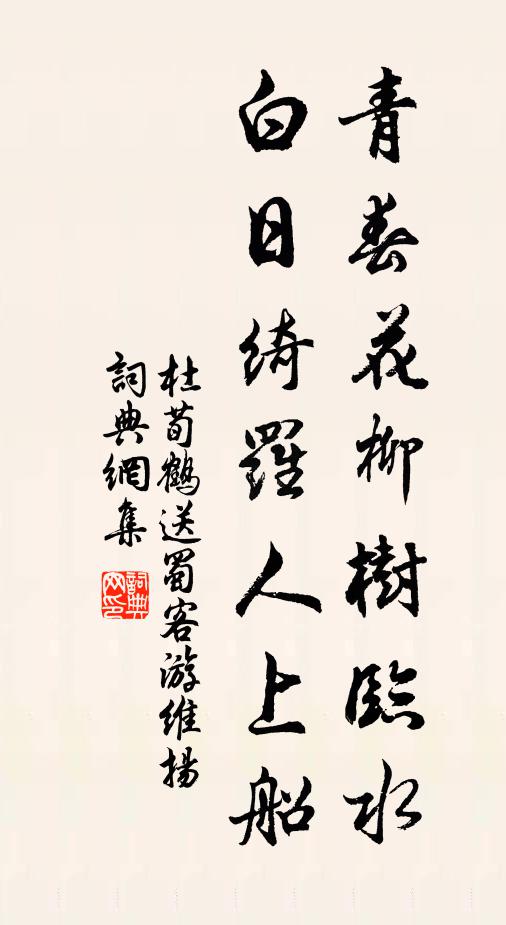 青春花柳樹臨水
白日綺羅人上船
杜荀鶴送蜀客游維揚
詞典網集
詞典網印